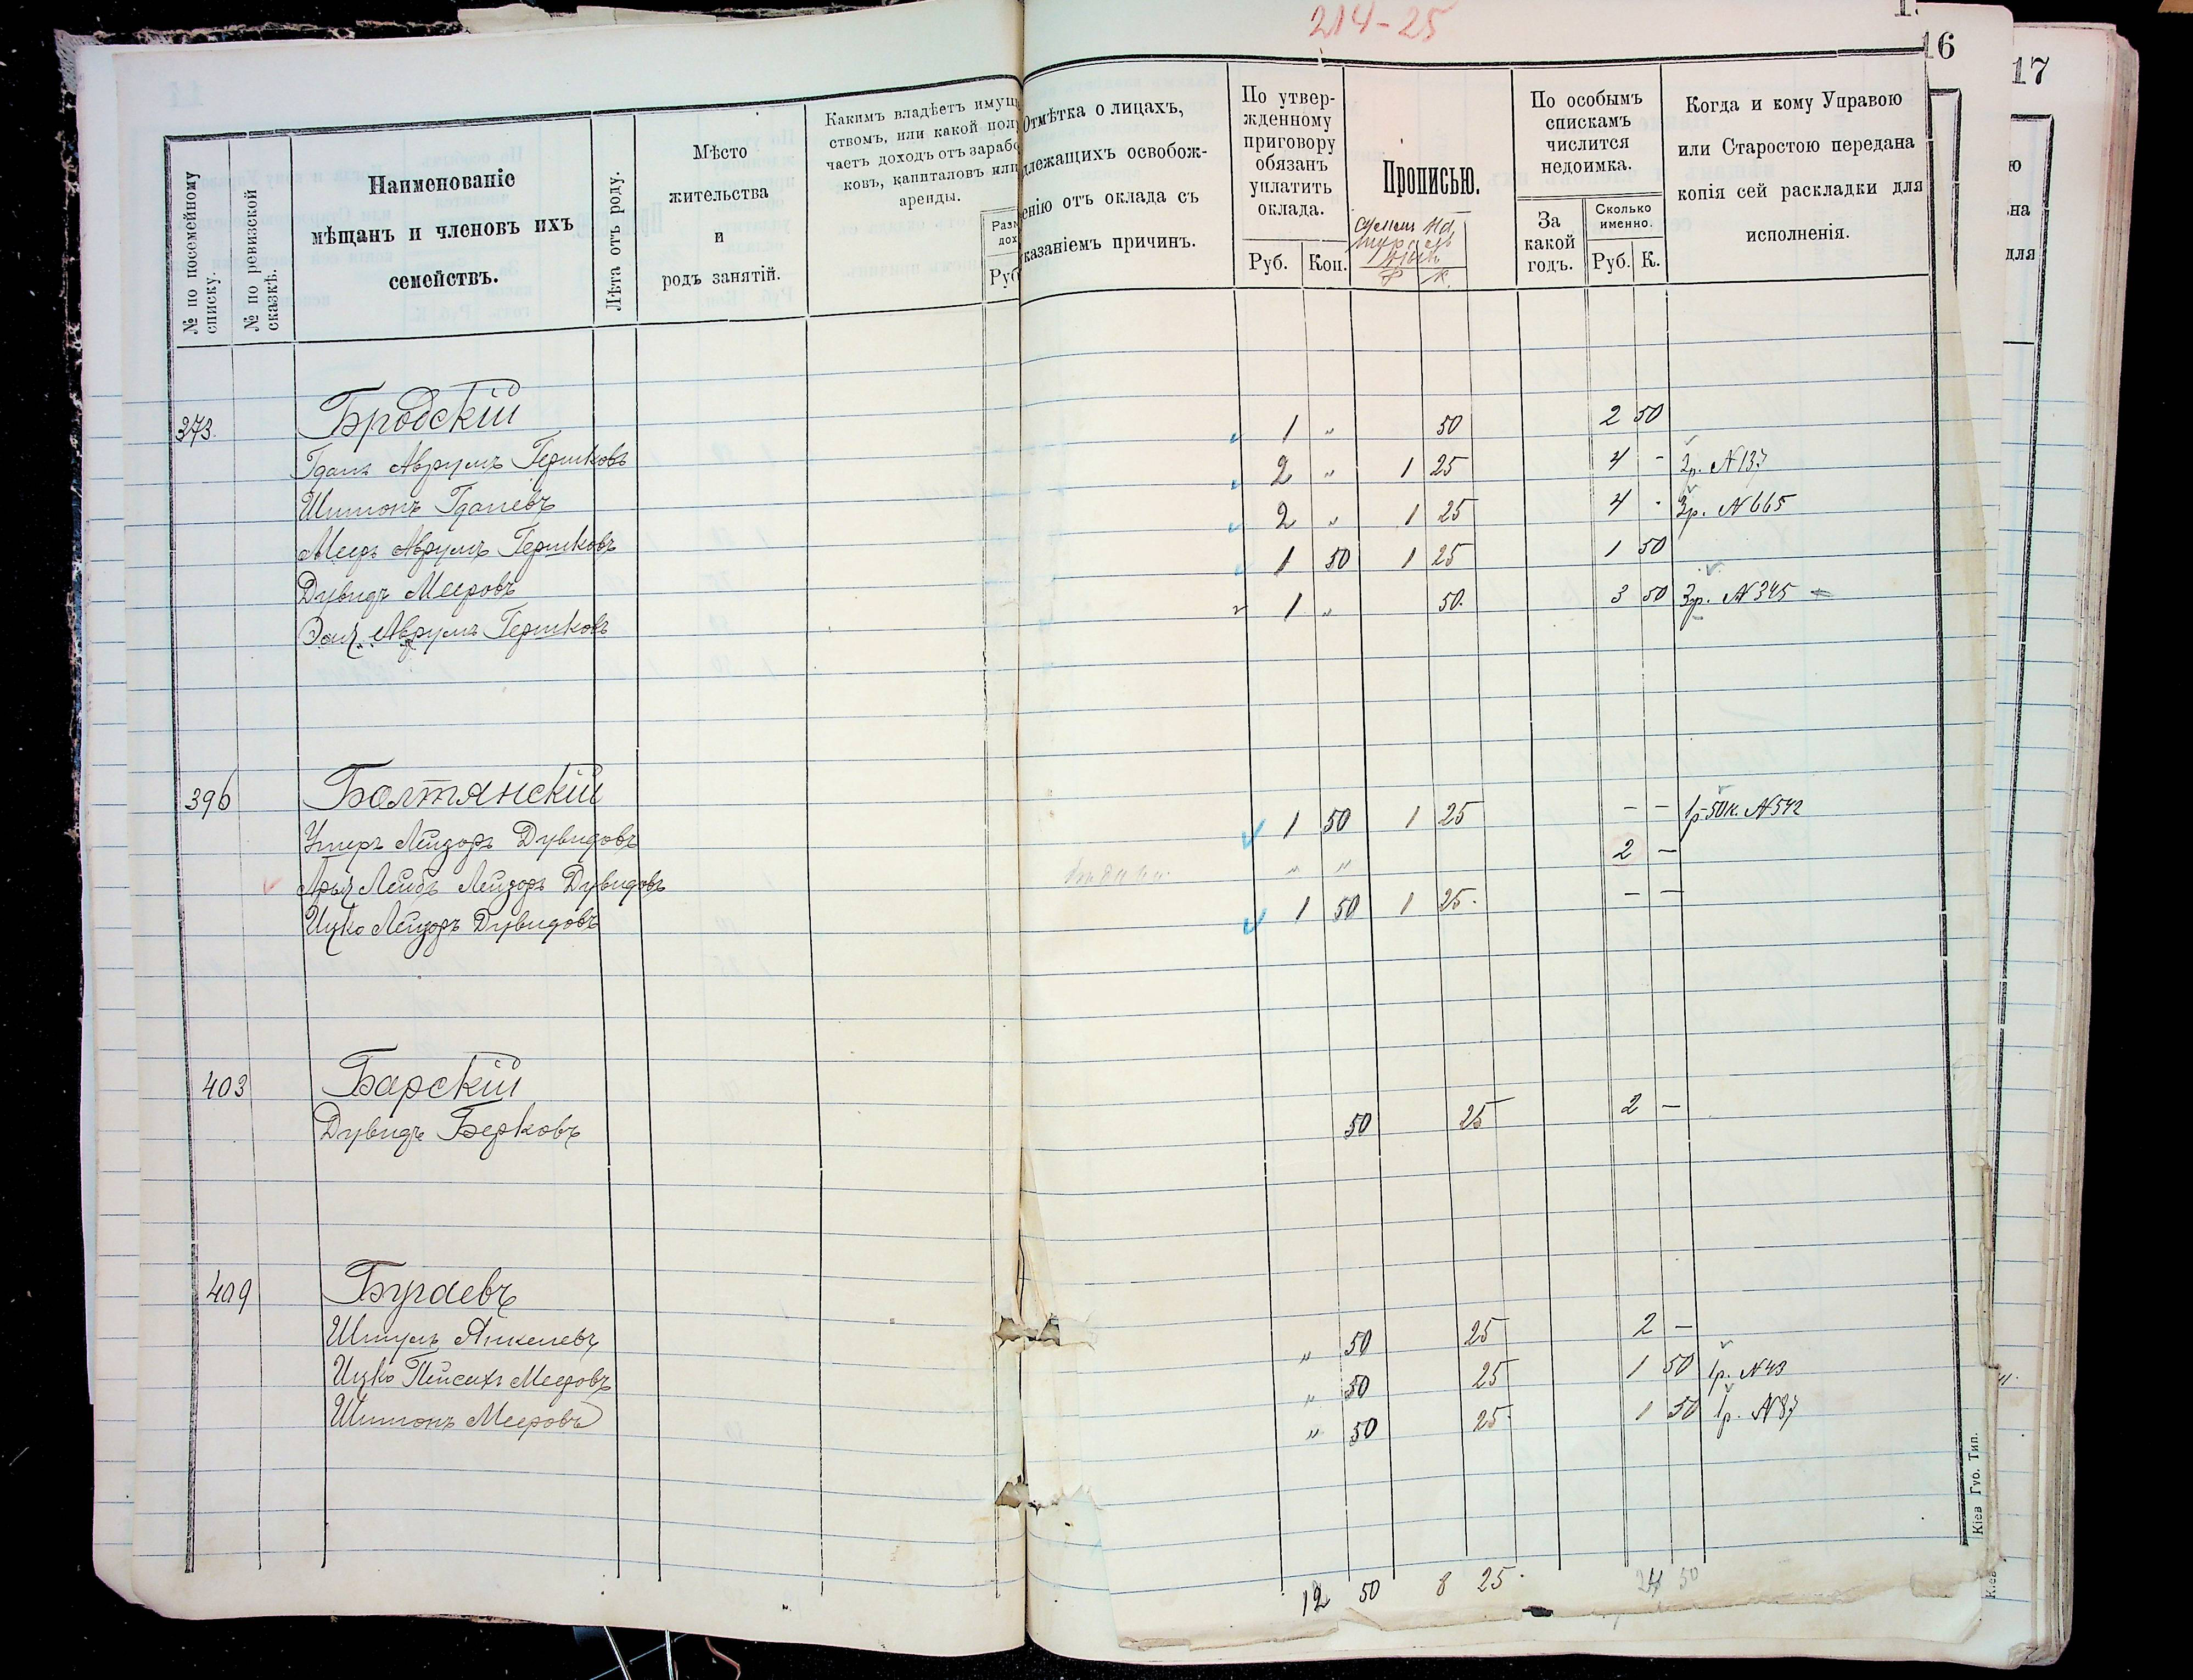 214-25
16
17
№ по посемейному списку.
№ по ревизской сказкѣ.
Наименованіе
мѣщанъ и членовъ ихъ
семействъ.
Лѣта отъ роду.
Мѣсто
жительства
и
родъ занятій.
Какимъ владѣетъ имущ
ствомъ, или какой пол
чаетъ доходъ отъ зарабо
ковъ, капиталовъ или
аренды.
Разм
дох
Руб
Отмѣтка о лицахъ,
длежащихъ освобож-
енію отъ оклада съ
казаніемъ причинъ.
По утвер-
жденному
приговору
обязанъ
уплатить
оклада.
Руб. Коп.
Прописью.
Р К.
По особымъ
спискамъ
числится
недоимка.
За
какой
годъ.
Сколько
именно.
Руб. К.
Когда и кому Управою
или Старостою передана
копія сей раскладки для
исполненія.
ю
на
для
373. Бродскій
Аврумъ Гершковъ 1 " 50 2 50
Шимонъ 2 " 1 25 4 - 2р. N137
Мееръ Аврумъ Гершковъ 2 " 1 25 4 - 3р. N665
Дувидъ Мееровъ 1 50 1 25 1 50
Аврумъ Гершковъ 1 " 50. 3 50 3р. N345
396 Болтянскій
Ушеръ Лейзоръ Дувидовъ 1 50 1 25 - - 1р-50к. N542
Арыя Лейбъ Лейзоръ Дувидовъ " " 2 -
Ицко Лейзоръ Дувидовъ 1 50 1 25. - -
403 Барскій
Дувидъ Берковъ 50 25 2 -
409 Бугаевъ
Шмулъ Янкелевъ " 50 25 2 -
Ицко Пейсахъ Мееровъ " 50 25 1 50 1р. N43
Шимонъ Мееровъ " 50 25. 1 50 1р. N87
12 50 8 25. 24 50
Кіев Губ. Тип.